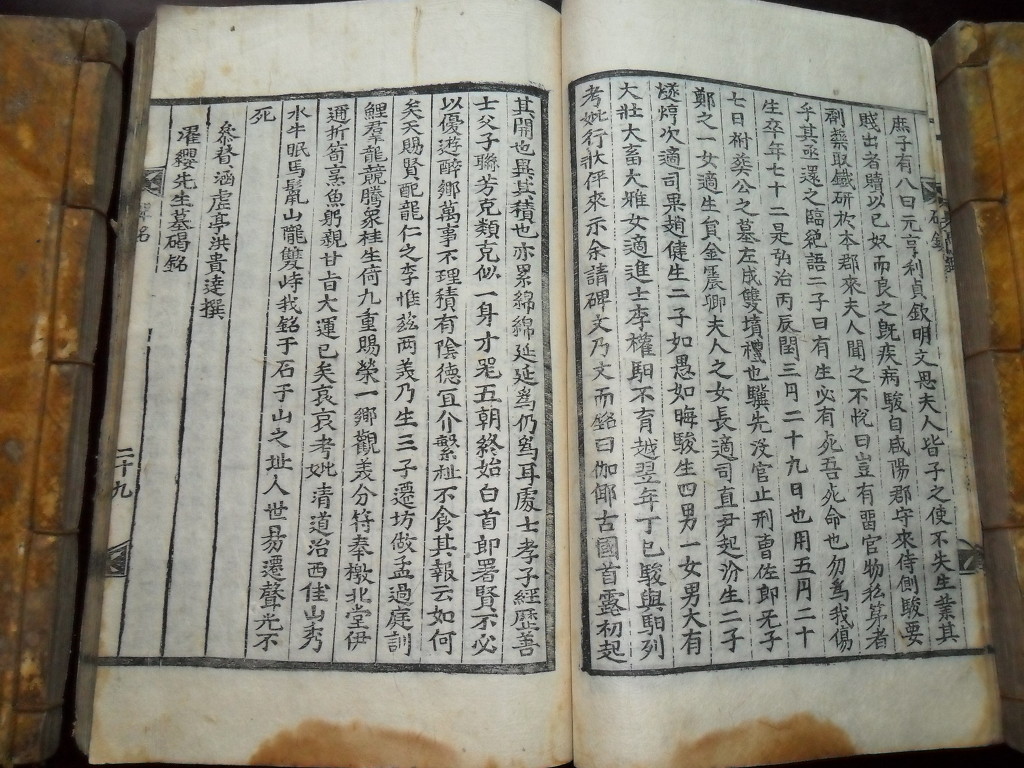 庶子有八曰元亨利貞欽明文思夫人皆子之使不失生業其
賤出者贖以已奴而良之旣疾病駿自咸陽郡守來侍側駿要
劑藥取鐵硏於本郡來夫人聞之不悅曰豈有畱官物私第者
乎其亟還之臨絕語二子曰有生必有死吾死命也勿爲我傷
生卒年七十二是弘治丙辰閏三月二十九日也用五月二十
七日祔葬公之墓左成雙墳禮也驥先沒官止刑曹佐郎无子
鄭之一女適生員金震卿夫人之女長適司直尹起汾生二子
次適司果趙健生二子如愚如晦駿生四男一女男大有
大壯大畜大雅女適進士李權馹不育越翌年丁巳駿與馹列
考妣行狀伻來示余請碑文乃文而銘曰伽倻古國首露初起
其開也㒷其積也亦累綿綿延延爲仍爲耳處士孝子經歷善
士父子聯芳克類克似一身才器五朝終始白首郎署賢不必
以優遊醉鄕萬事不理積有陰德宜介繫祉不食其報云如何
矣天賜賢配龍仁之李惟玆兩美乃生三子遷坊做孟過庭訓
鯉羣龍競騰衆桂生荷九重賜榮一鄕觀美分符奉檄北堂伊
邇折筍烹魚躬親甘旨大運已矣哀哀考妣淸道治西佳山秀
水牛眠馬鬣山隴雙峙我銘于石于山之址人世昜遷聲光不
死
叅春涵虛亭洪貴達撰
濯纓先生墓碣銘
二十九